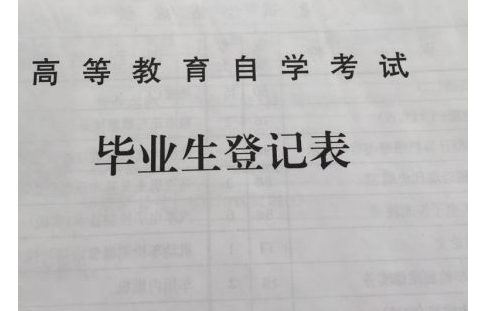 高等教育自学考试
毕业生登记表